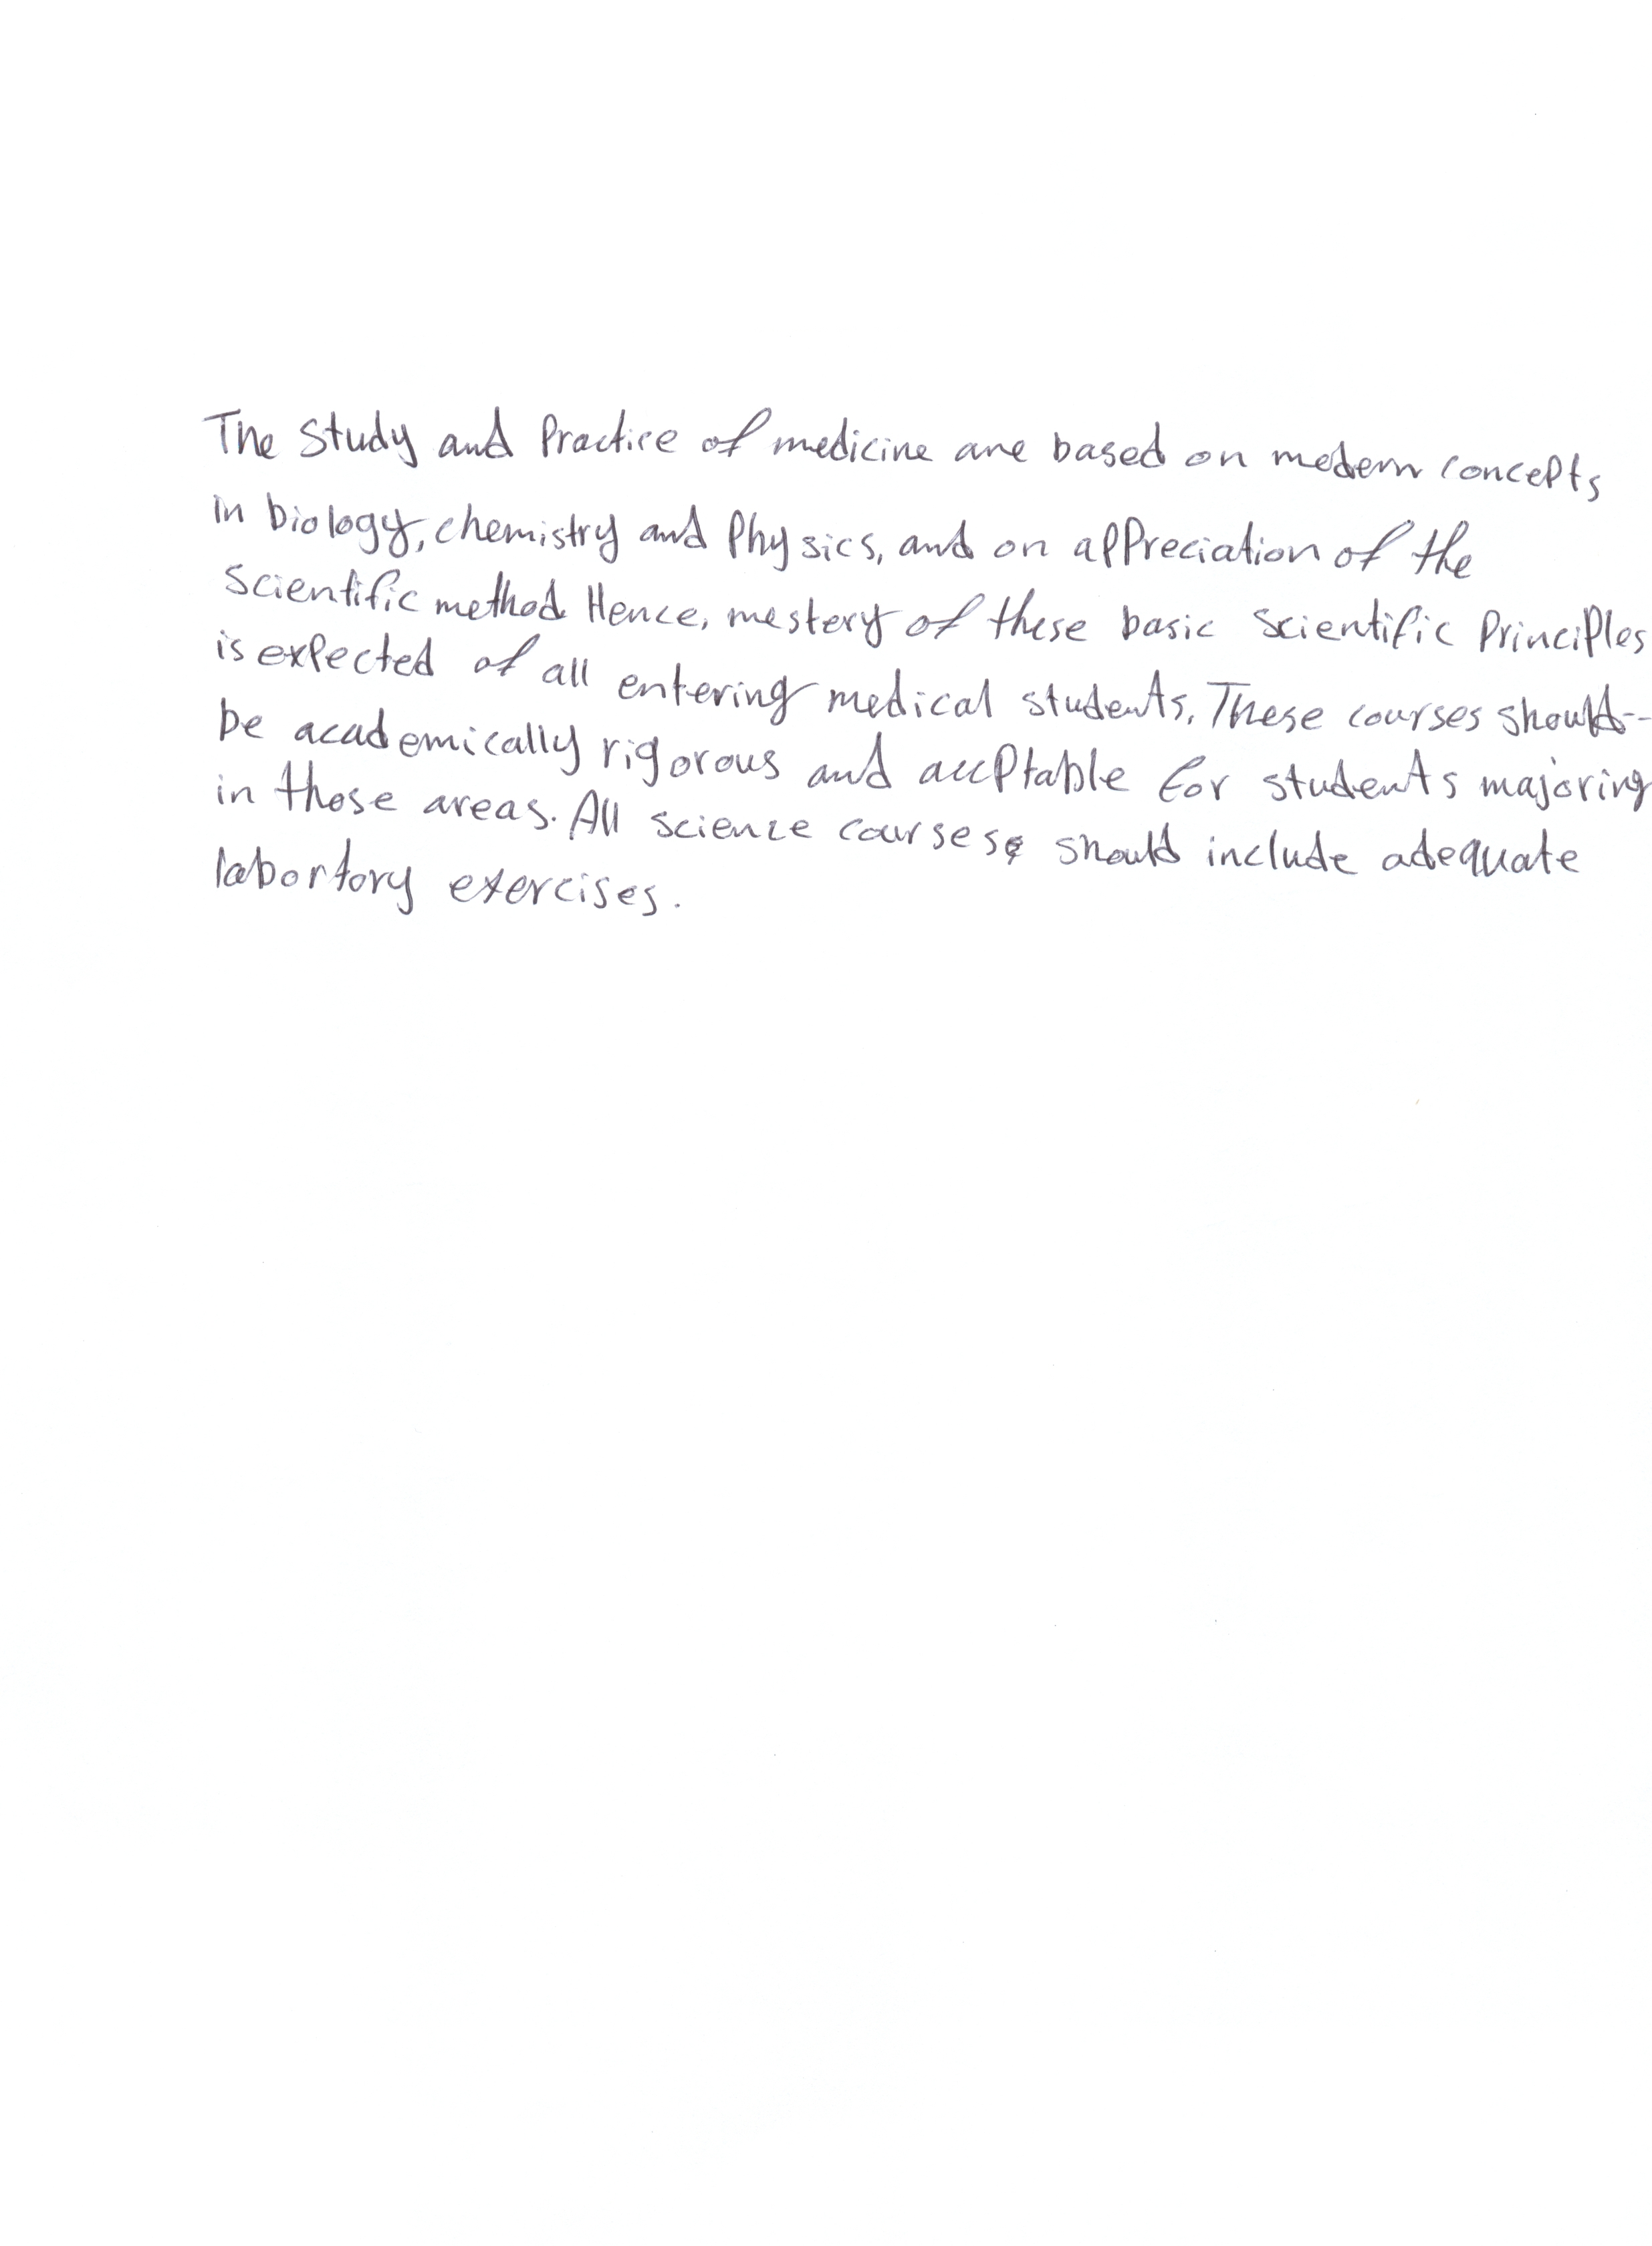 The Study and Practice of medicine are based on medern concepts
in biology, chemistry and Physics, and on appreciation of the
Scientific method. Hence, mestery of these basic Scientific Principles
is expected of all entering medical students. These courses should--
be academically rigorous and accptable for students majoring
in those areas. All science courses should include adequate
labortory exercises.